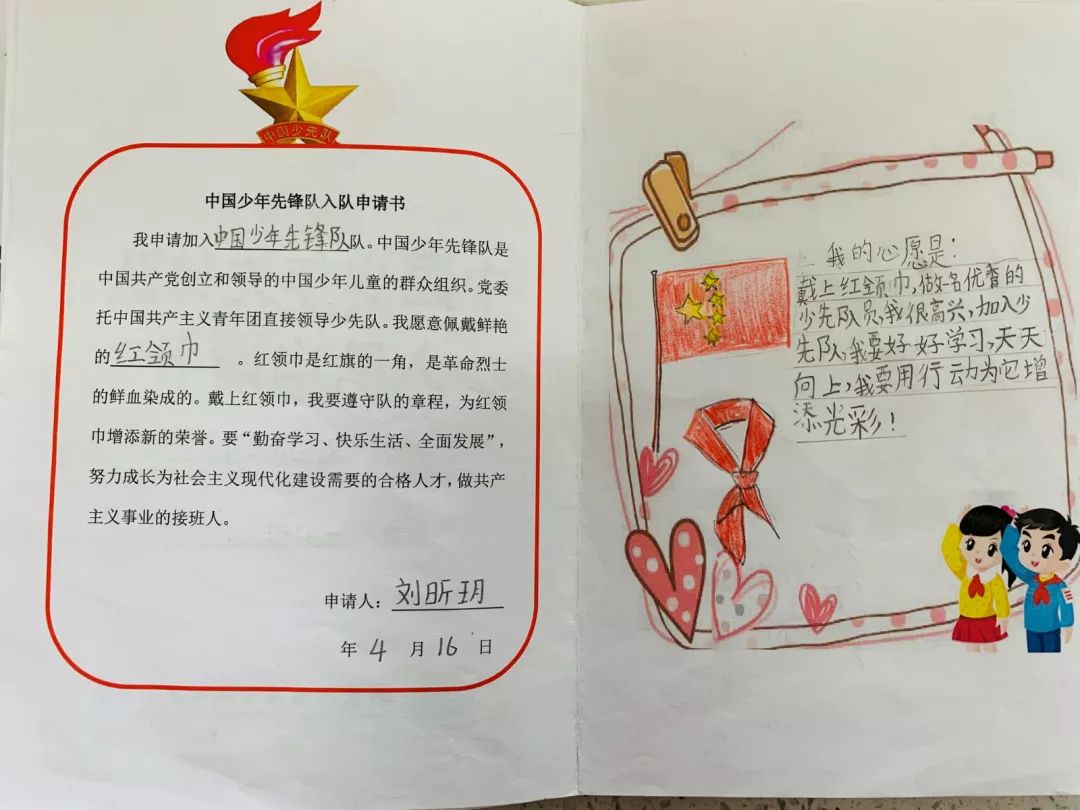 中国少先队
中国少年先锋队入队申请书
我申请加入中国少年先锋队队。中国少年先锋队是
中国共产党创立和领导的中国少年儿童的群众组织。党委
托中国共产主义青年团直接领导少先队。我愿意佩戴鲜艳
的红领巾。红领巾是红旗的一角，是革命烈士
的鲜血染成的。戴上红领巾，我要遵守队的章程，为红领
巾增添新的荣誉。要“勤奋学习、快乐生活、全面发展”，
努力成长为社会主义现代化建设需要的合格人才，做共产
主义事业的接班人。
申请人：刘昕玥
年4月16日
我的心愿是：
戴上红领巾，做名优香的
少先队员，我很高兴，加入少
先队，我要好好学习，天天
向上，我要用行动为它增
添光彩！